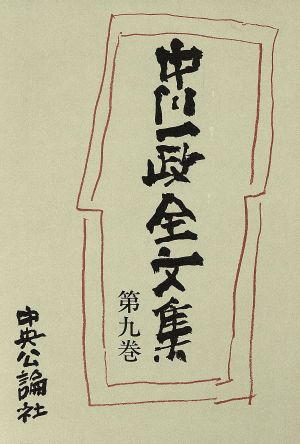 中川一政全文集
第九巻
中央公論社